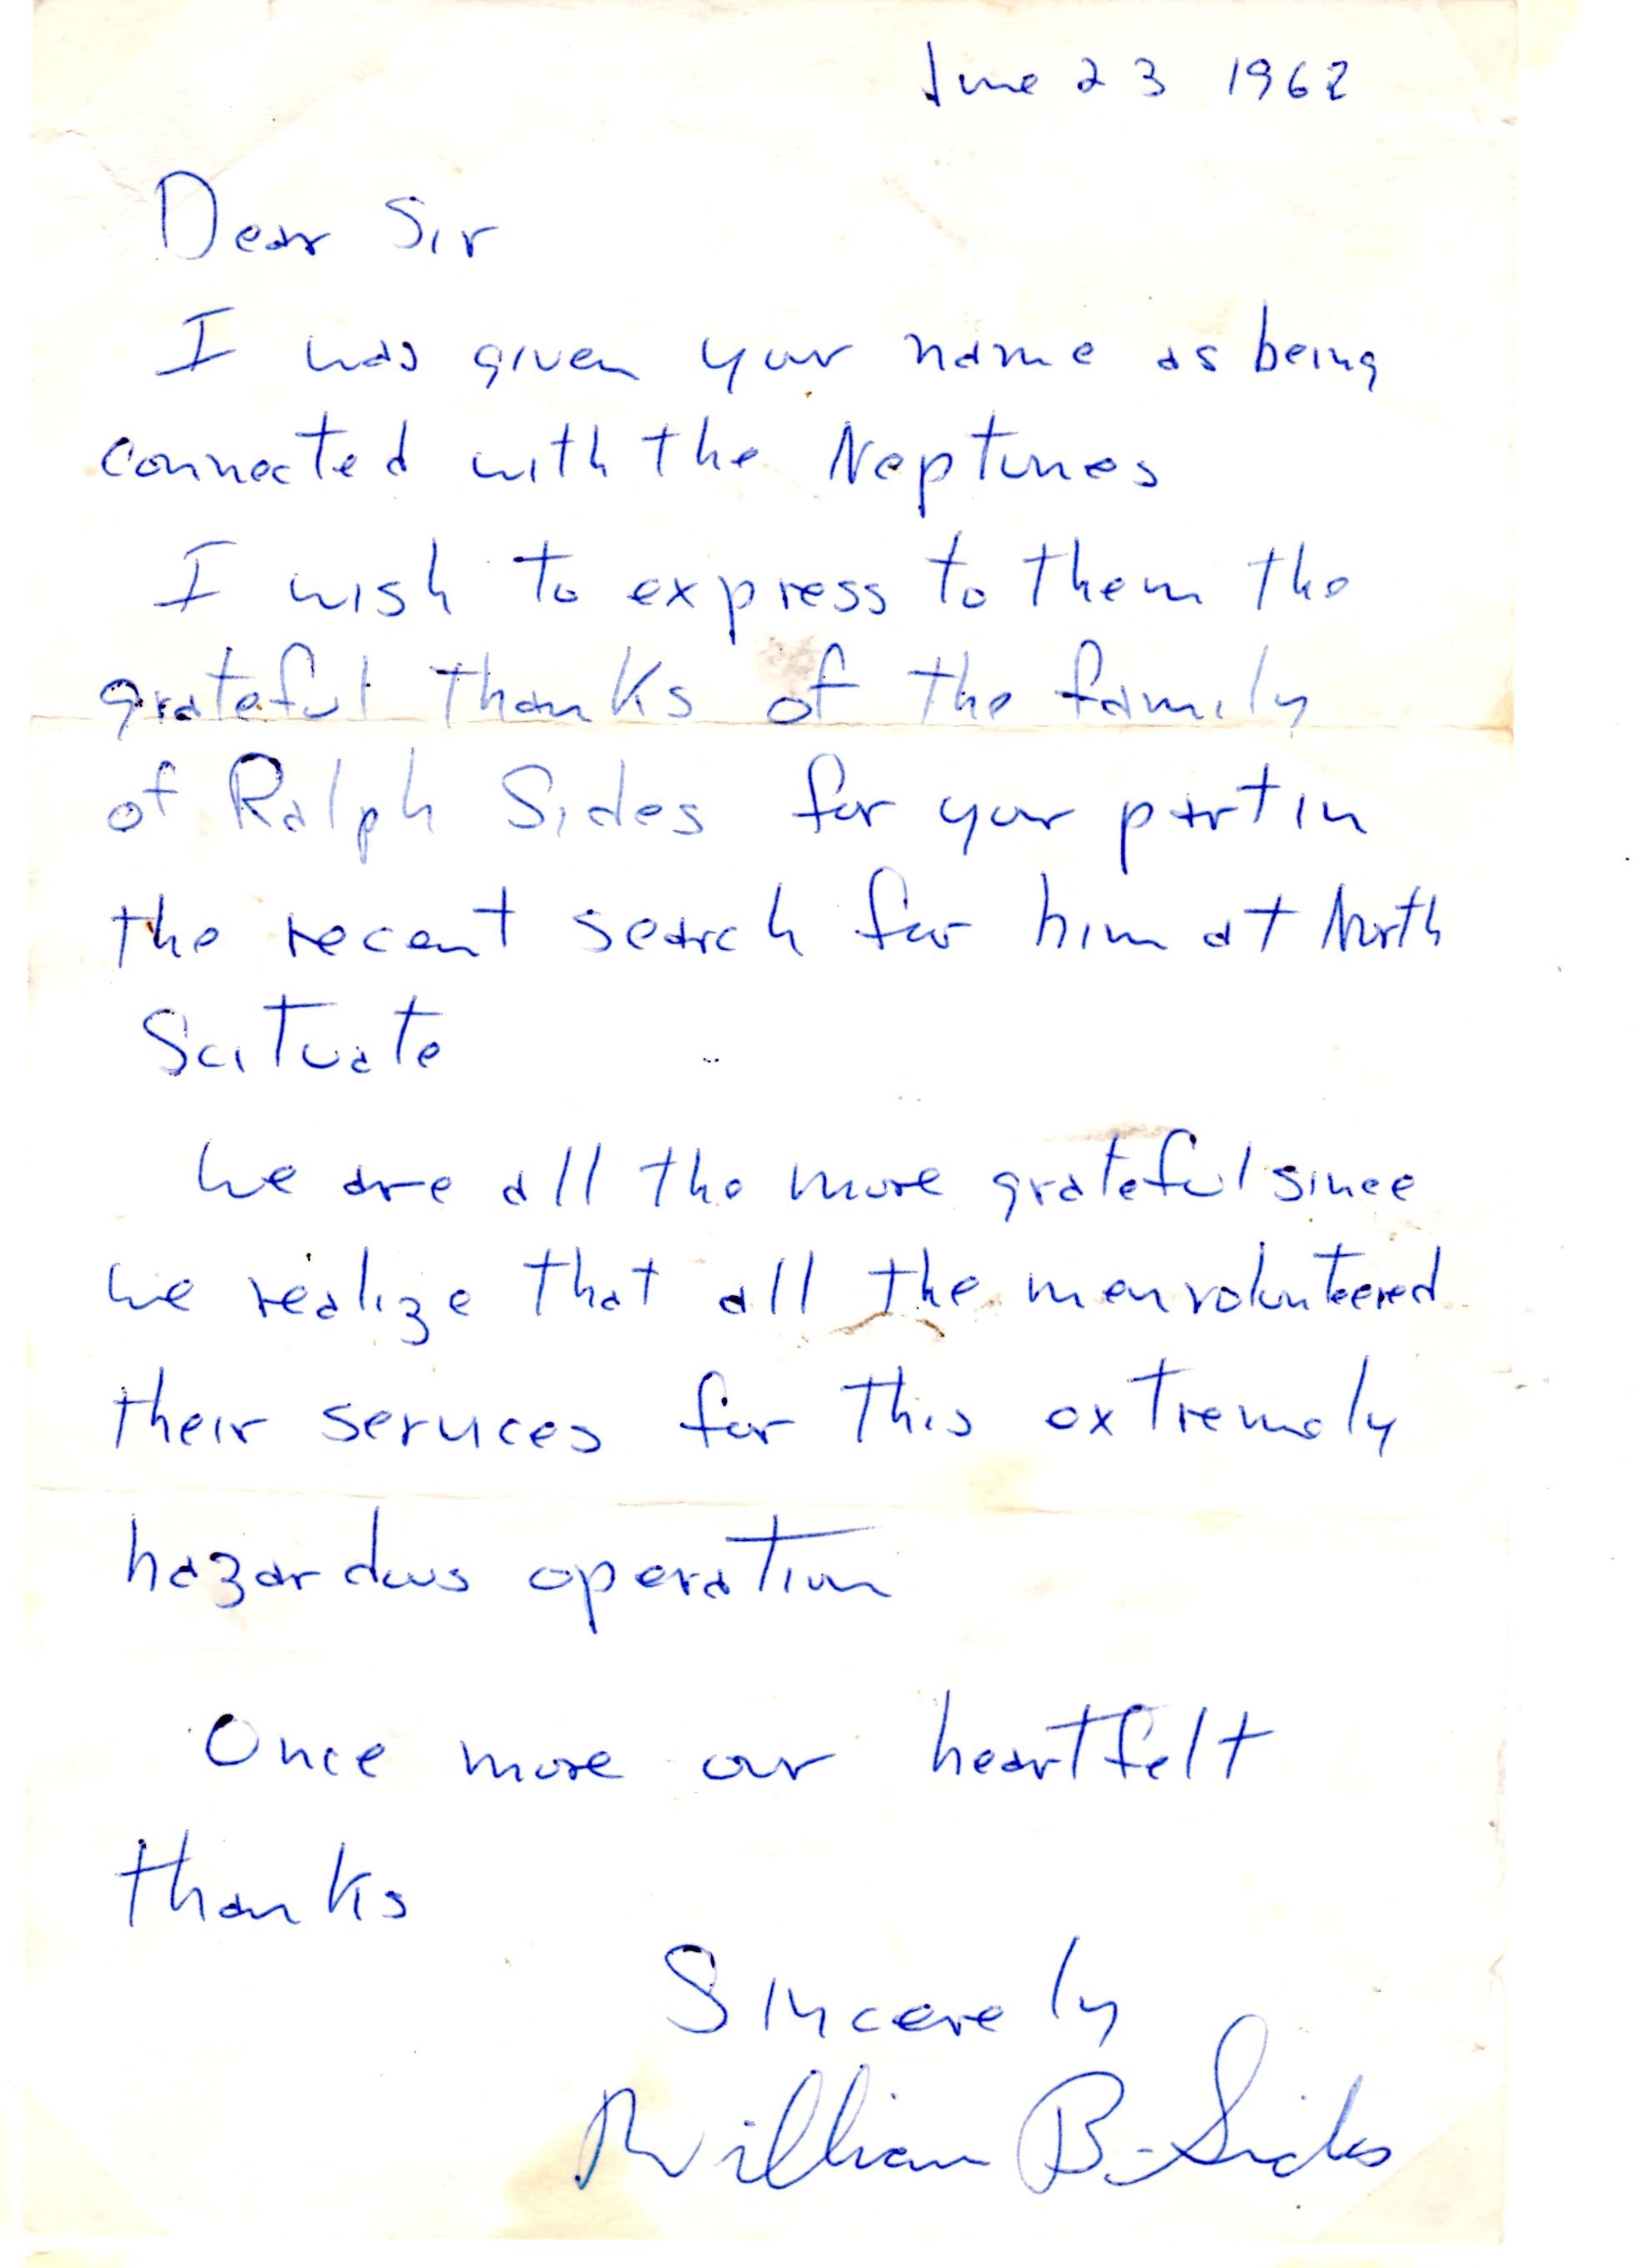 June 23 1962
Dear Sir
I was given your name as being
connected with the Neptunes
I wish to express to them the
grateful thanks of the family
of Ralph Sides for your part in
the recent search for him at North
Scituate
We are all the more grateful since
we realize that all the men volunteered
their services for this extremely
hazardous operation
Once more our heartfelt
thanks
Sincerely
William B. Sides